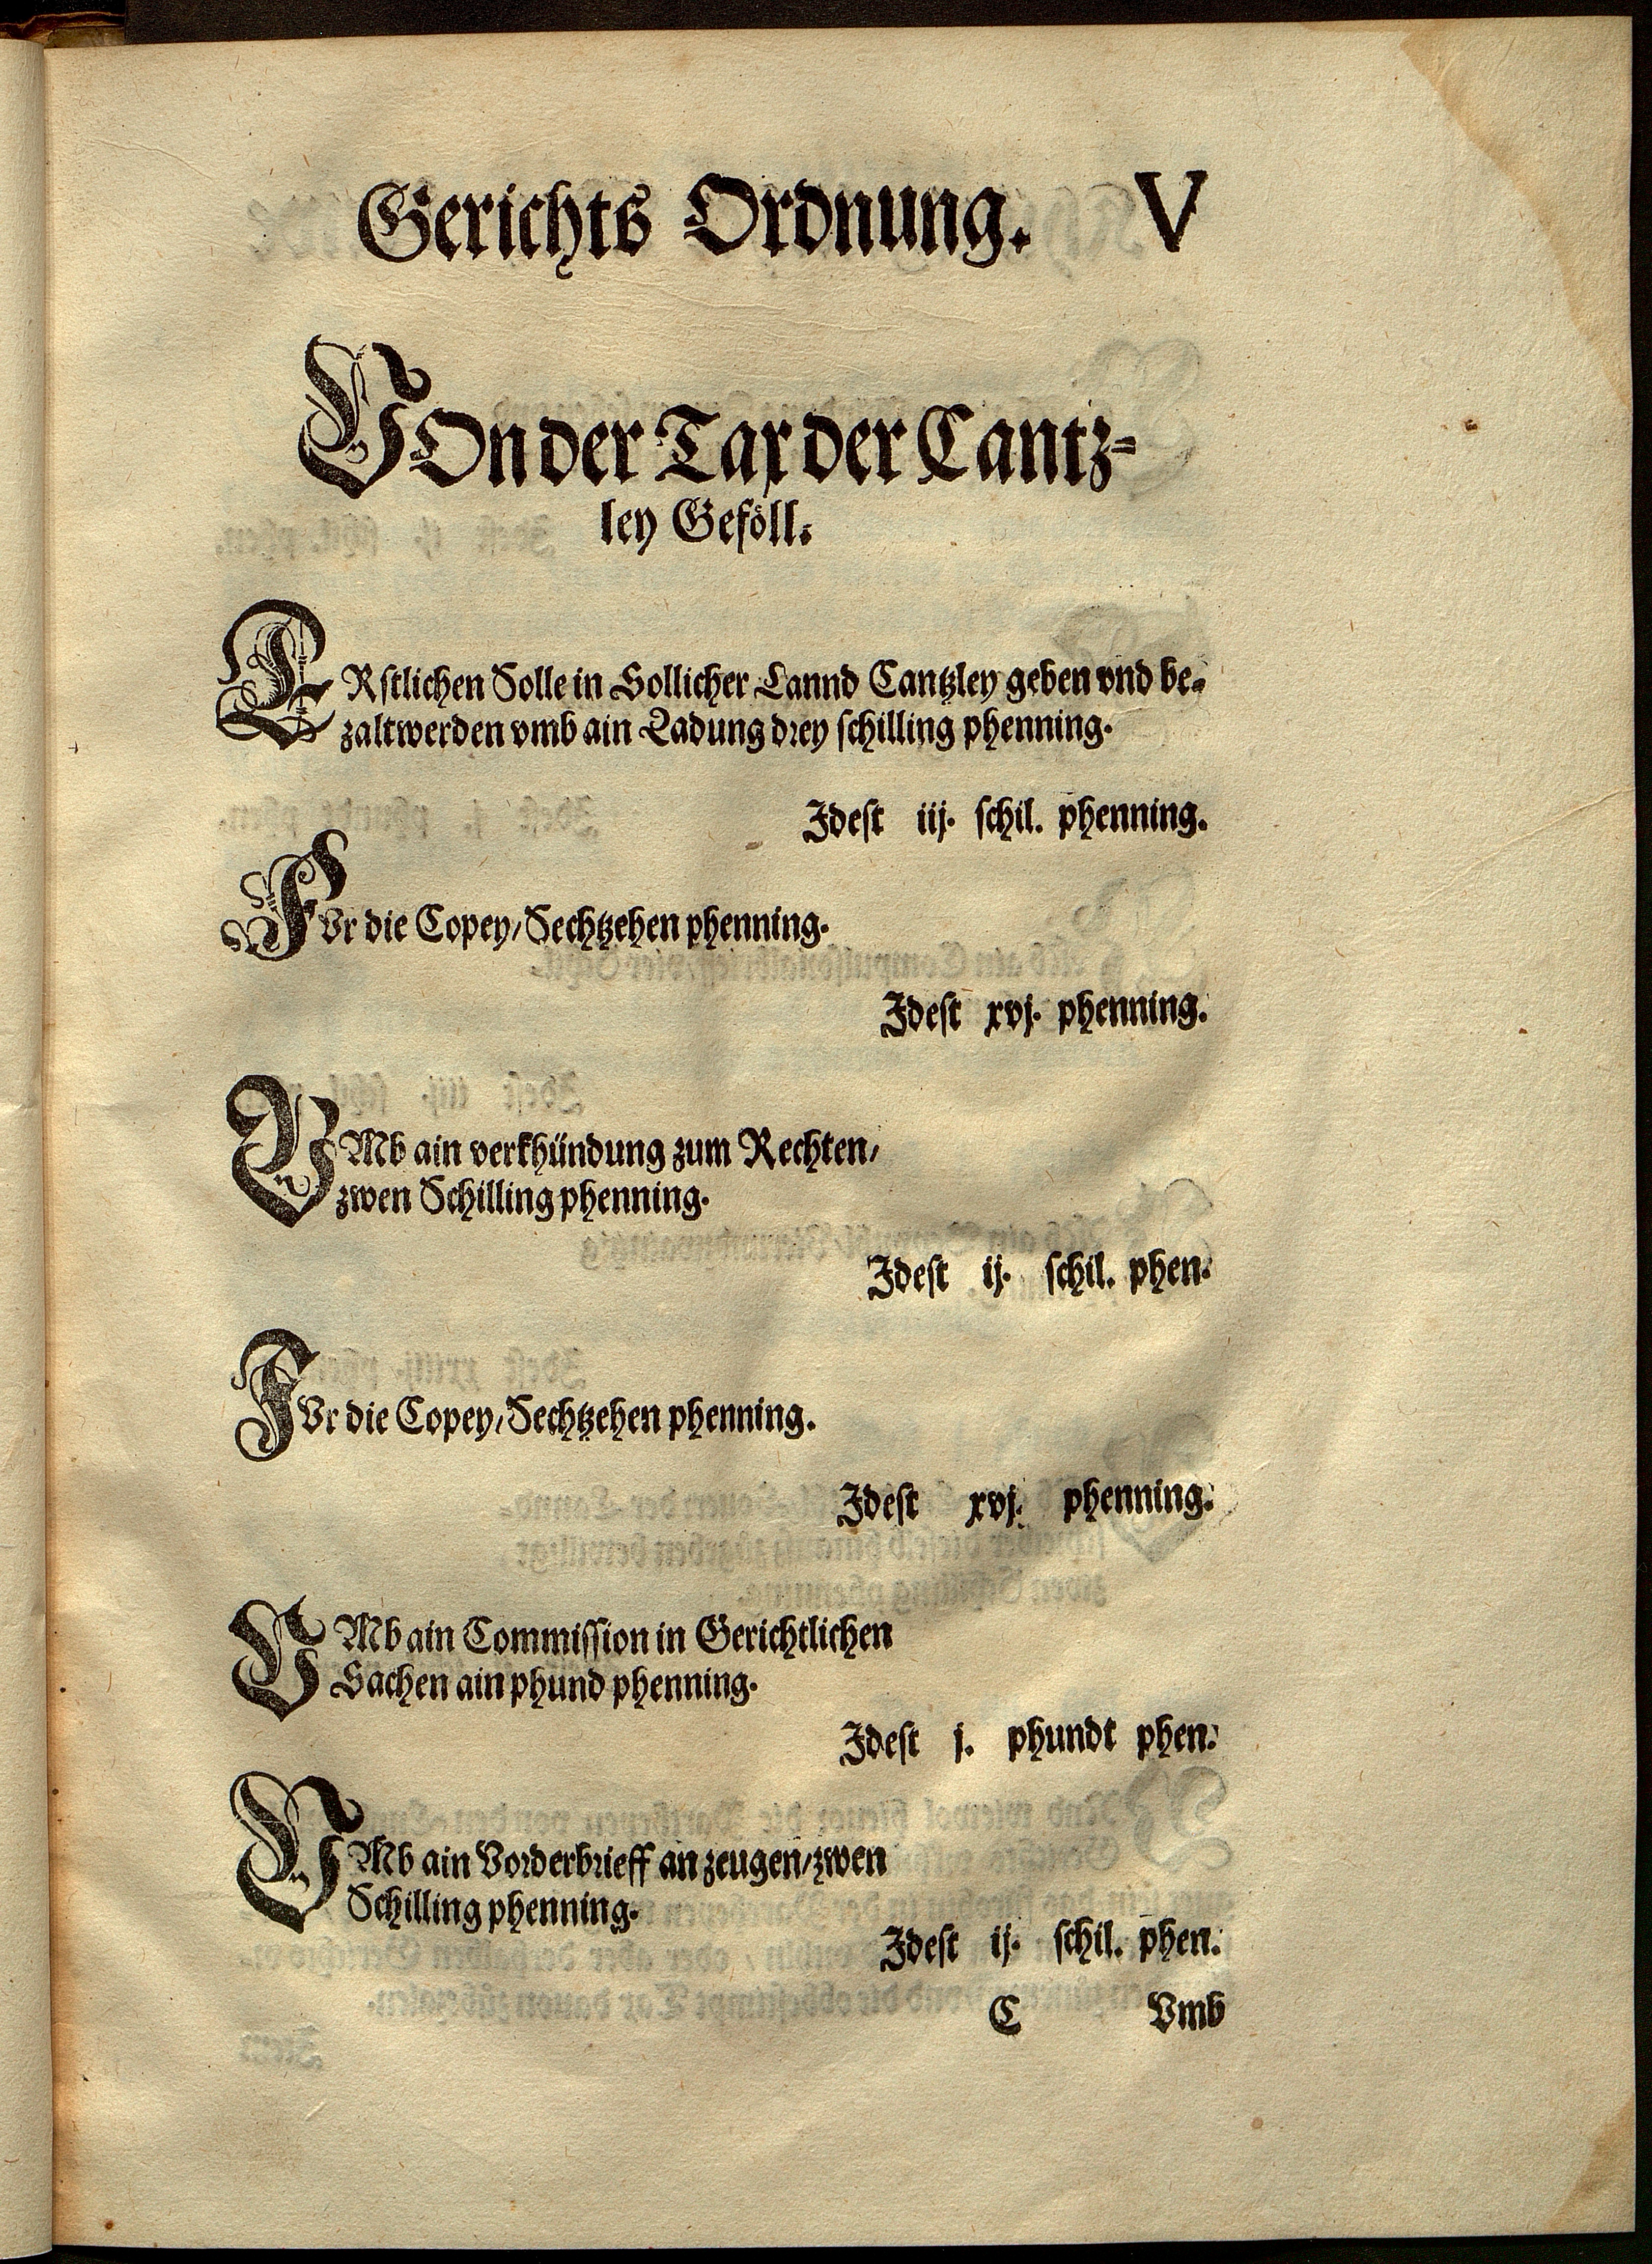 Gerichts Ordnung. V
VOn der Tax der Cantz=
ley Geföll.
ERstlichen Solle in Sollicher Lannd Cantzley geben vnd be-
zalt werden vmb ain Ladung drey schilling phenning.
Idest iij. schil. phenning.
FVr die Copey/ Sechtzehen phenning.
Idest xvj. phenning.
VMb ain verkhündung zum Rechten/
zwen Schilling phenning.
Idest ij. schil. phen.
FVr die Copey/ Sechtzehen phenning.
Idest xvj. phenning.
VMb ain Commission in Gerichtlichen
Sachen ain phund phenning.
Idest j. phundt phen.
VMb ain Vorderbrieff an zeugen/ zwen
Schilling phenning.
Idest ij. schil. phen.
C Vmb